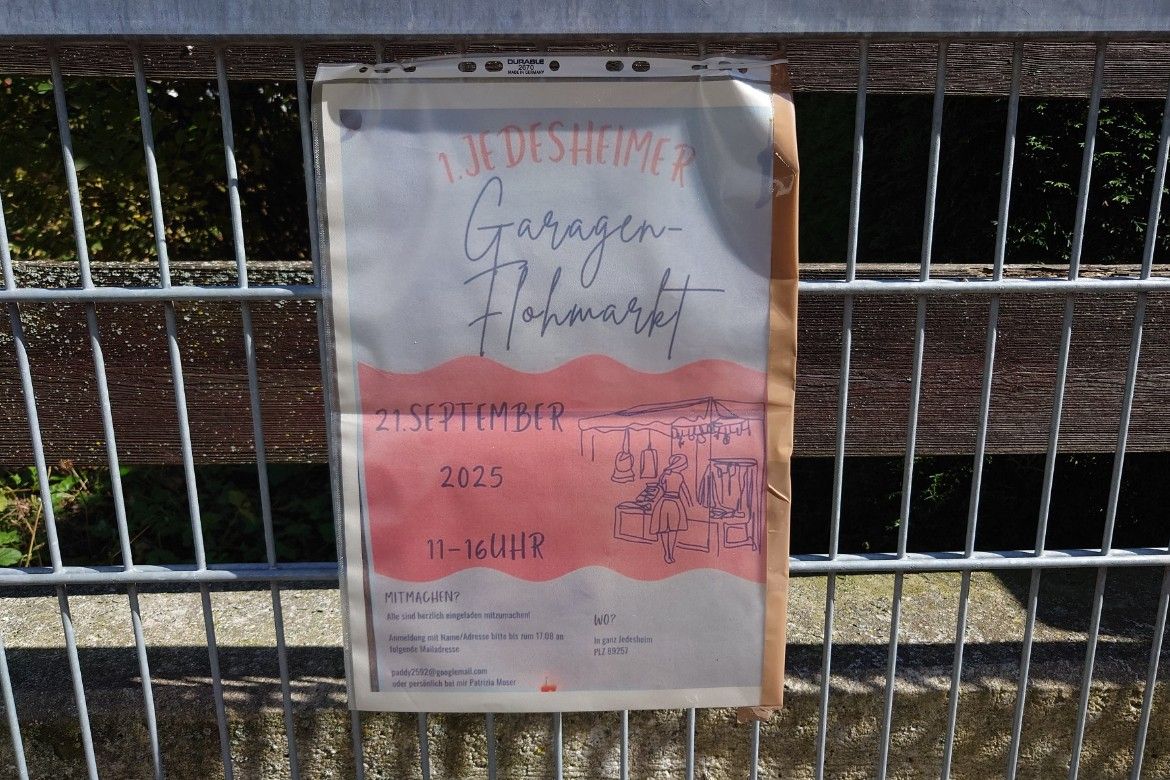 DURABLE
2670
MADE IN GERMANY
1. JEDESHEIMER
Garagen-
Flohmarkt
21. SEPTEMBER
2025
11-16 UHR
MITMACHEN?
Alle sind herzlich eingeladen mitzumachen!
Anmeldung mit Name/Adresse bitte bis zum 17.08 an
folgende Mailadresse
paddy2592@googlemail.com
oder persönlich bei mir Patrizia Moser
WO?
In ganz Jedesheim
PLZ 89257